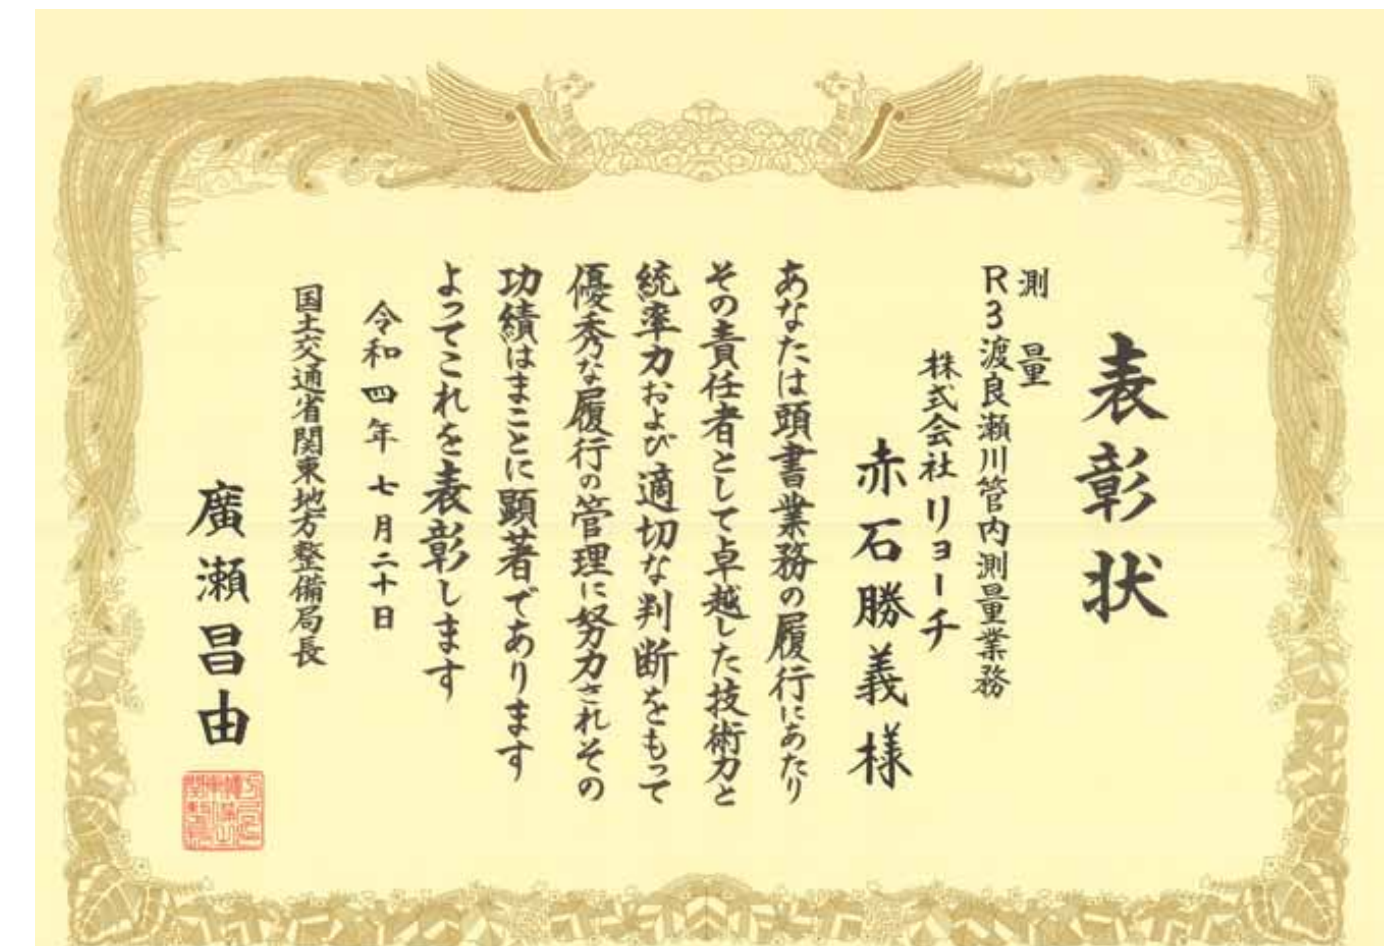 表彰状
測量
R3渡良瀬川管内測量業務
株式会社リョーチ
赤石勝義様
あなたは頭書業務の履行にあたり
その責任者として卓越した技術力と
統率力および適切な判断をもって
優秀な履行の管理に努力されその
功績はまことに顕著であります
よってこれを表彰します
令和四年七月二十日
国土交通省関東地方整備局長
廣瀬昌由